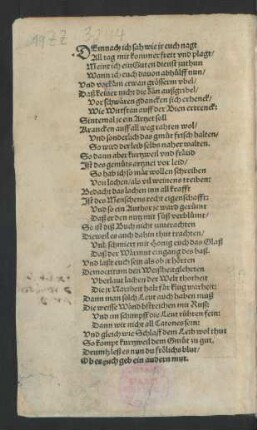 DEmnach ich sah wie je euch nagt
All tag mit kommer frett vnd plagt/
Meint ich ein Guten dienst zuthun
Wann ich euch dauon abhülff nun/
Vnd vorkäm etwan grösserm vbel/
Daß keiner nicht die Bän außgrübel/
Vor schwären gdancken sich erhenck/
Wie Wirtfraw auff der Bien ertrenck:
Sintemal je ein Artzet soll
Krancken auff all weg rahten wol/
Vnd sonderlich das gmüt frisch halten/
So wird der leib selbs naher walten.
So dann aber kurtzweil vnd fräud
Ist des gmüts artznei vor leid/
So hab ich so mär wöllen schreiben
Von lachen/ als vil weinens treiben:
Bedacht das lachen inn all krafft
Ist des Menschens recht eigenschafft:
Vnd so ein Author je ward gerümt
Daß er den nutz mit süß verblümt/
So ist diß Buch nicht zuuerachten
Dieweil es auch dahin thut trachten/
Vnd schmiert mit Honig euch das Glaß
Daß der Wärmut eingang des baß.
Vnd laßt euch sein als ob jr hörten
Democritum den Weißheitglehrten
Vberlaut lachen der Welt thorheit
Die jr Narrheit helt für klug warheit:
Dann man solch Leut auch haben muß
Die weisse Wänd bestreichen mit Ruß
Vnd im schimpff die Leut rühren fein:
Dann wir nicht all Catones sein:
Vnd gleich wie Schlaff dem Leib wol thut
So kompt kurtzweil dem Gmüt zu gut,
Drumb leß es nun du frölichs blut/
Ob es euch geb ein andern mut.